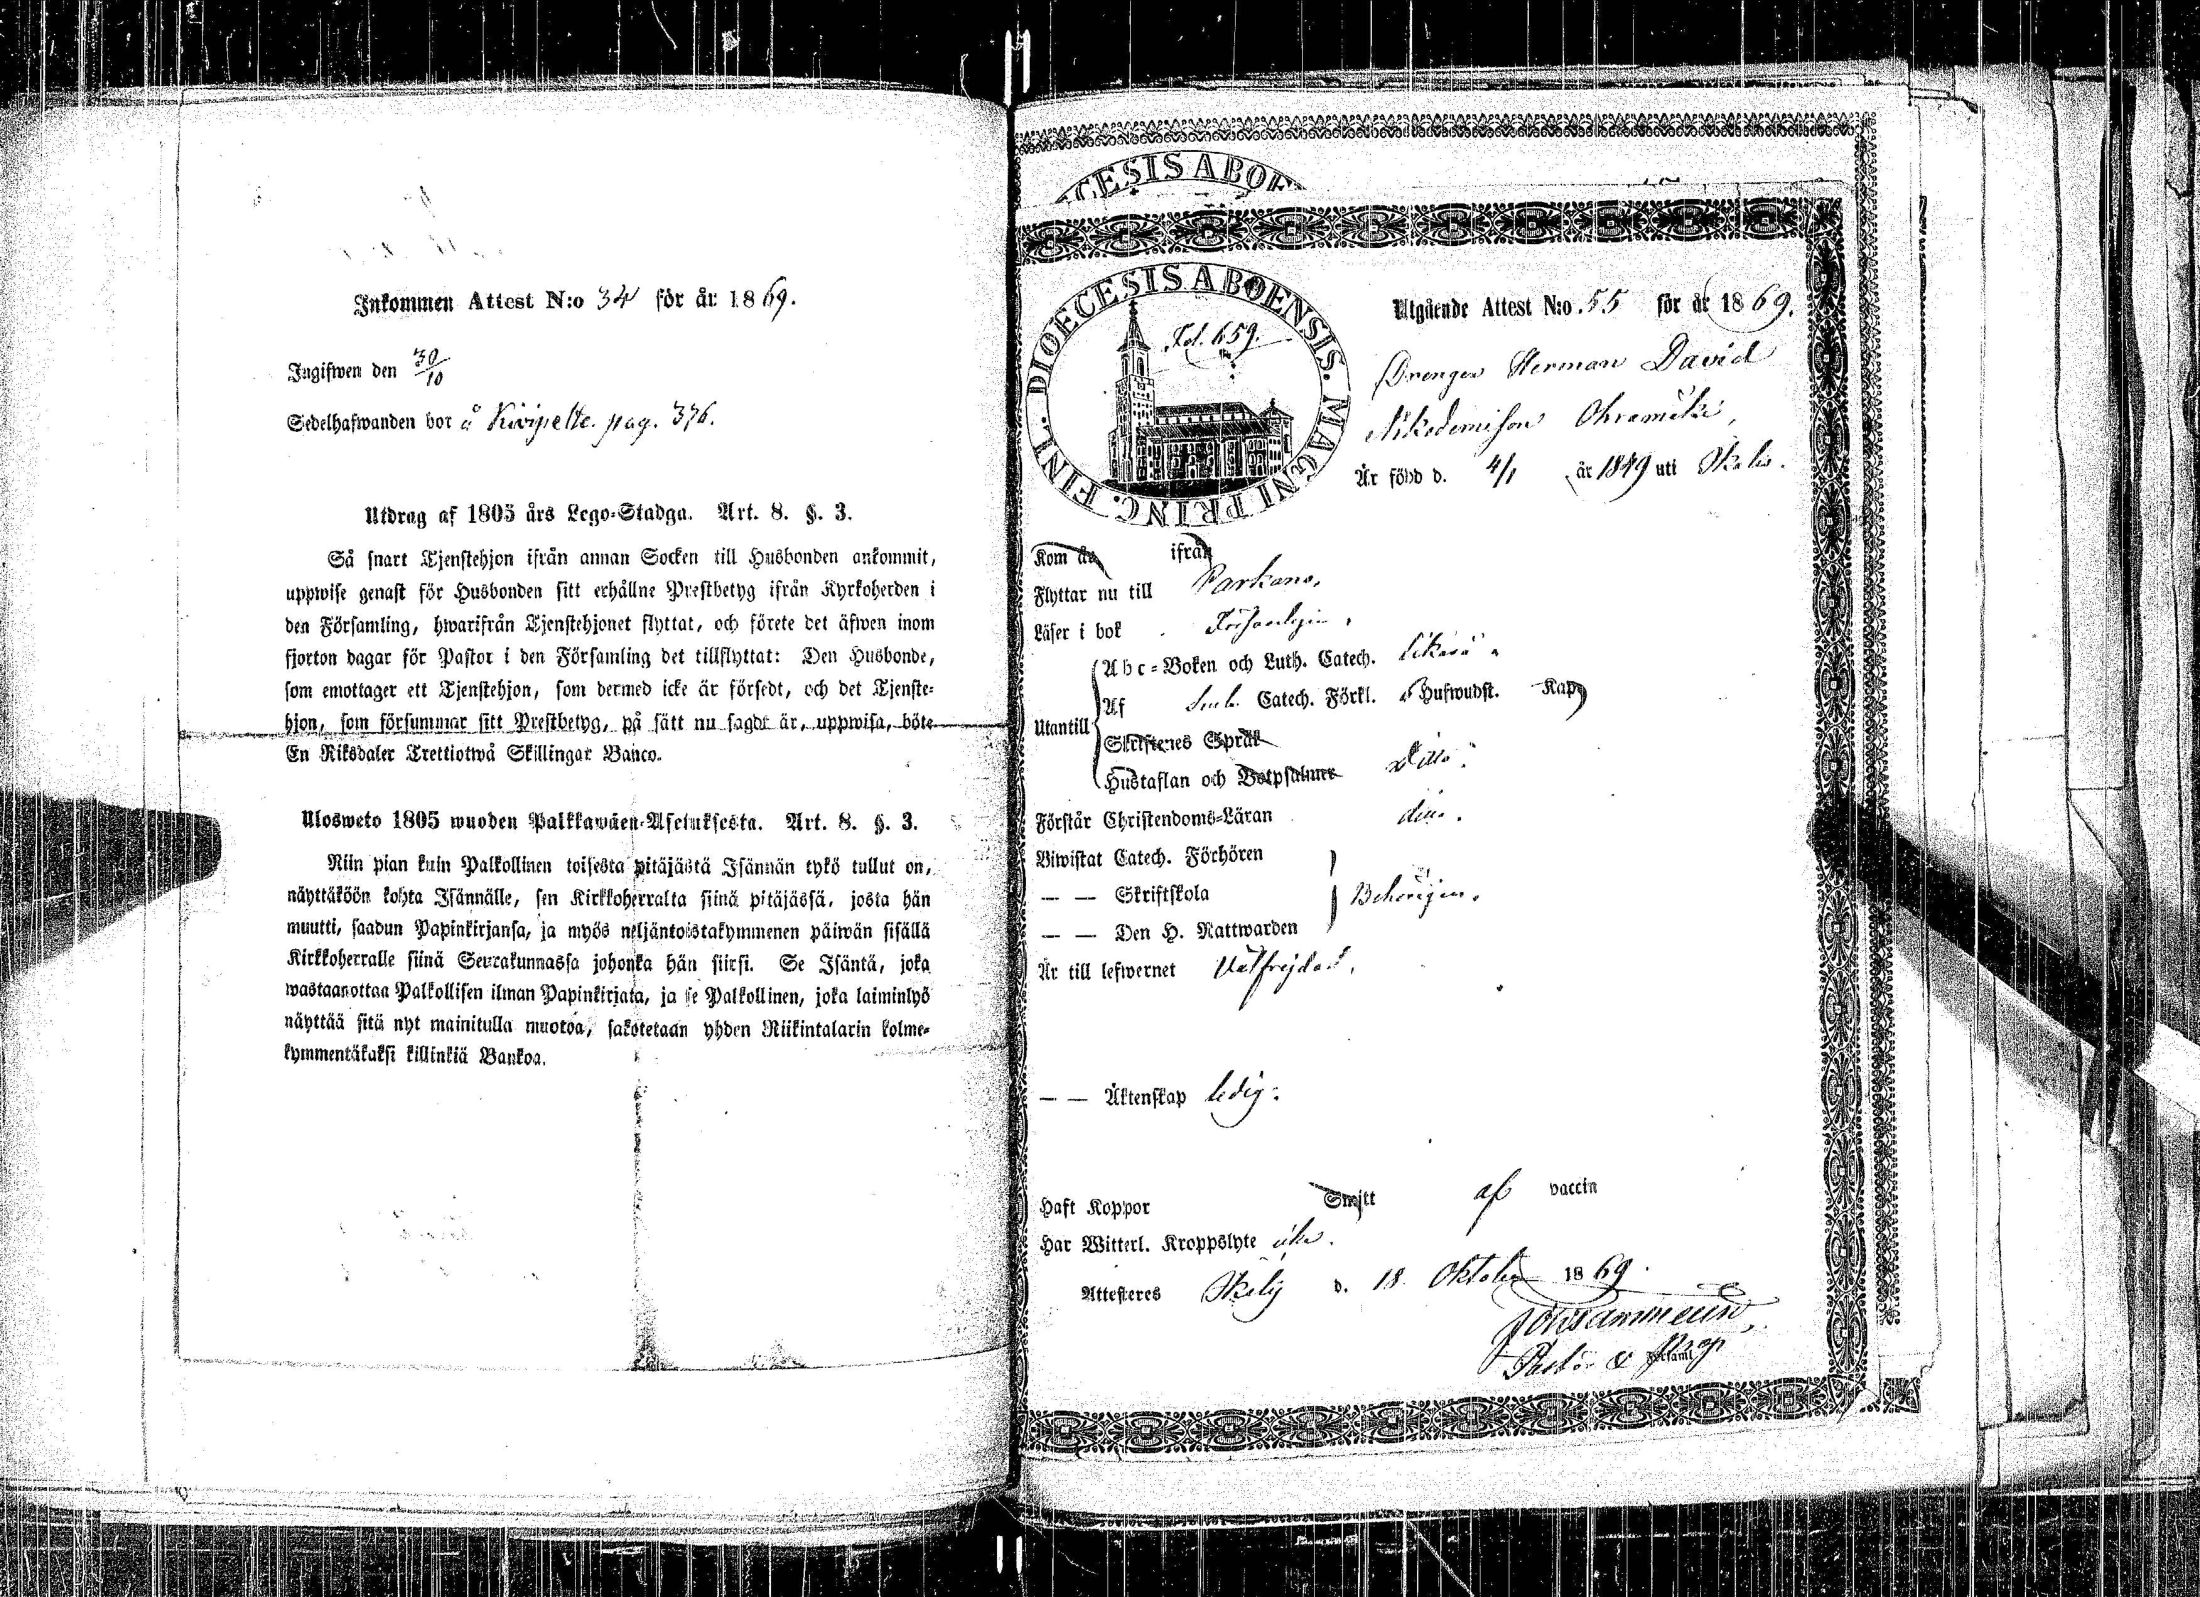 Inkommen Attest N:o 34 för år 1869.
Ingifwen den 30/10
Sedelhafwanden bor å Kivipelto. pag. 376.
Utdrag af 1805 års Lego-Stadga. Art. 8. §. 3.
Så snart Tjenstehjon ifrån annan Socken till Husbonden ankommit,
uppwise genast för Husbonden sitt erhållne Prestbetyg ifrån Kyrkoherden i
den Församling, hwarifrån Tjenstehjonet flyttat, och förete det äfwen inom
fjorton dagar för Pastor i den Församling det tillflyttat: Den Husbonde,
som emottager ett Tjenstehjon, som dermed icke är försedt, och det Tjenste-
hjon, som försummar sitt Prestbetyg, på sätt nu sagdt är, uppwisa, böte
En Riksdaler Trettiotwå Skillingar Banco.
Ulosweto 1805 wuoden Palkkawäen-Asetuksesta. Art. 8. §. 3.
Niin pian kuin Palkollinen toisesta pitäjästä Isännän tykö tullut on,
näyttäköön kohta Isännälle, sen Kirkkoherralta siinä pitäjässä, josta hän
muutti, saadun Papinkirjansa, ja myös neljäntoistakymmenen päiwän sisällä
Kirkkoherralle siinä Seurakunnassa johonka hän siirsi. Se Isäntä, joka
wastaanottaa Palkollisen ilman Papinkirjata, ja se Palkollinen, joka laiminlyö
näyttää sitä nyt mainitulla muotoa, sakotetaan yhden Riikintalarin kolme-
kymmentäkaksi killinkiä Bankoa.
CESIS ABOE
DIOECESIS ABOENSIS. MAGNI PRINC. FINL.
Fol. 659.
Utgående Attest N:o 55 för år 1869.
Drengen Herman David
Nikodemison Ohramäki,
Är född d. 4/1 år 1849 uti
Kom år ifrån
Flyttar nu till Parkano.
Läser i bok Försvarligen,
Abc-Boken och Luth. Catech.
Utantill Af Catech. Förkl. Hufwudst. Kap
Skriftenes Språk
Hustaflan och Botpsalmer Ditto
Förstår Christendoms-Läran dito.
Biwistat Catech. Förhören
— — Skriftskola Behörigen.
— — Den H. Nattwarden
Är till lefwernet Välfrejdad,
— — Äktenskap ledig.
Haft Koppor Smitt af vaccin
Har Witterl. Kroppslyte icke.
Attesteres d. 18 Oktober 1869.
Pastor församl